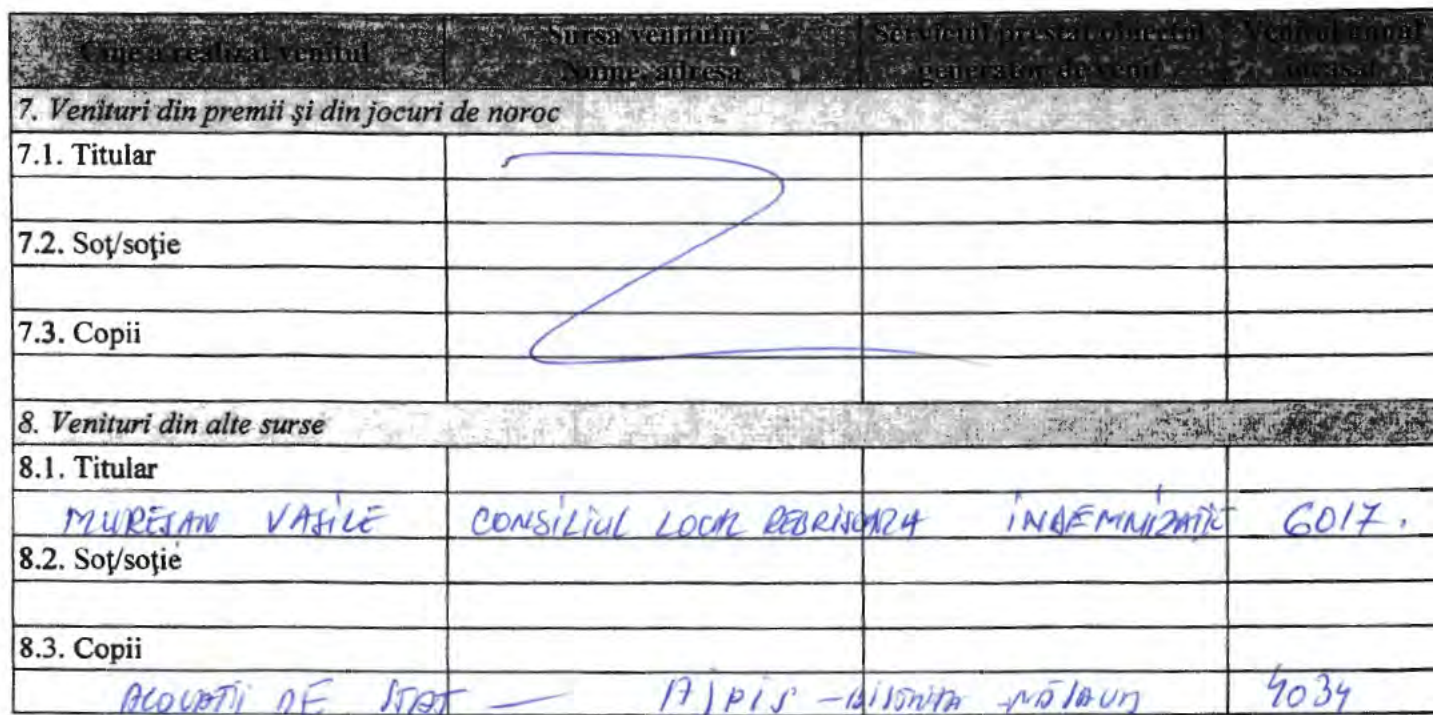 Cine a realizat venitul Sursa venitului: Serviciul prestat/obiectul Venitul anual
Nume, adresa generator de venit încasat
7. Venituri din premii şi din jocuri de noroc
7.1. Titular
7.2. Soţ/soţie
7.3. Copii
8. Venituri din alte surse
8.1. Titular
MUREŞAN VASILE CONSILIUL LOCAL REBRIŞOARA INDEMNIZAŢIE 6017.
8.2. Soţ/soţie
8.3. Copii
ALOCAŢII DE STAT — AJPIS - BISTRIŢA NĂSĂUD 4034